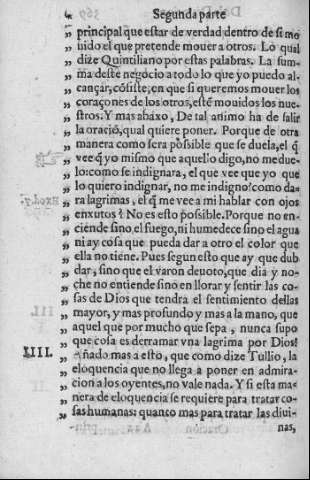 Segunda parte
„ principal que estar de verdad dentro de si mo
„ uido el que pretende mouer a otros. Lo qual
„ dize Quintiliano por estas palabras. La sum-
„ ma deste negocio a todo lo que yo puedo al-
„ cançar, cõsiste, en que si queremos mouer los
„ coraçones de los otros, estẽ mouidos los nue-
„ stros. Y mas abaxo, De tal animo ha de salir
„ la oraciõ, qual quiere poner. Porque de otra
„ manera como sera possible que se duela, el q̃
„ vee q̃ yo mismo que aquello digo, no me due-
„ lo: como se indignara, el que vee que yo que
„ lo quiero indignar, no me indigno? como da-
„ ra lagrimas, el q̃ me vee a mi hablar con ojos
„ enxutos? No es esto possible. Porque no en-
„ ciende sino el fuego, ni humedece sino el agua
„ ni ay cosa que pueda dar a otro el color que
„ ella no tiene. Pues segun esto que ay que dub
„ dar, sino que el varon deuoto, que dia y no-
„ che no entiende sino en llorar y sentir las co-
„ sas de Dios que tendra el sentimiento dellas
„ mayor, y mas profundo y mas a la mano, que
„ aquel que por mucho que sepa, nunca supo
„ que cosa es derramar vna lagrima por Dios?
IIII. Añado mas a esto, que como dize Tullio, la
„ eloquencia que no llega a poner en admira-
„ cion a los oyentes, no vale nada. Y si esta ma-
„ nera de eloquencia se requiere para tratar co-
„ sas humanas: quanto mas para tratar las diui-
nas,